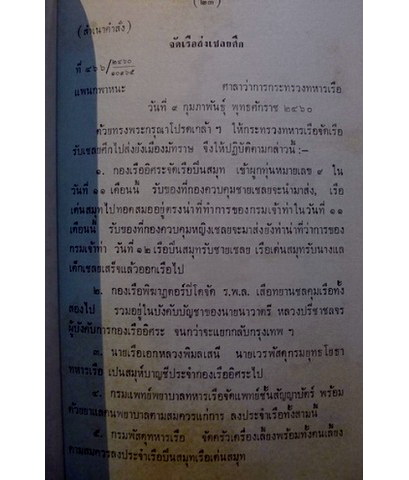 (๒๓)
(สำเนาคำสั่ง)
จัดเรือส่งเชลยศึก
ที่ ๔๖๖/๒๔๖๐
๑๐๕๖๕
แพนกพาหนะ ศาลาว่าการกระทรวงทหารเรือ
วันที่ ๙ กุมภาพันธุ์ พุทธศักราช ๒๔๖๐
ด้วยทรงพระกรุณาโปรดเกล้า ฯ ให้กระทรวงทหารเรือจัดเรือ
รับเชลยศึกไปส่งยังเมืองมัทราษ จึงให้ปฏิบัติตามกล่าวนี้ :—
๑. กองเรืออิศระจัดเรือบึนสมุท เข้าผูกทุ่นหมายเลข ๙ ใน
วันที่ ๑๑ เดือนนี้ รับของที่กองควบคุมชายเชลยจะนำมาส่ง, เรือ
เด่นสมุทไปทอดสมออยู่ตรงน่าที่ทำการของกรมเจ้าท่าในวันที่ ๑๑
เดือนนี้ รับของที่กองควบคุมหญิงเชลยจะมาส่งยังท่าน่าที่ว่าการของ
กรมเจ้าท่า วันที่ ๑๒ เรือบึนสมุทรับชายเชลย เรือเด่นสมุทรับนางแล
เด็กเชลยเสร็จแล้วออกเรือไป
๒. กองเรือพิฆาฏตอร์ปิโดจัด ร.พ.ล. เสือทยานชลคุมเรือทั้ง
สองไป รวมอยู่ในบังคับบัญชาของนายนาวาตรี หลวงปรีชาชลจร
ผู้บังคับการกองเรืออิศระ จนกว่าจะแยกกลับกรุงเทพ ฯ
๓. นายเรือเอกหลวงพิมลเสนี นายเวรพัสดุกรมยุทธโยธา
ทหารเรือ เปนสมุห์บาญชีประจำกองเรืออิศระไป
๔. กรมแพทย์พยาบาลทหารเรือจัดแพทย์ชั้นสัญญาบัตร์ พร้อม
ด้วยยาแลคนพยาบาลตามสมควรแก่การ ลงประจำเรือทั้งสามนี้
๕. กรมพัสดุทหารเรือ จัดครัวเครื่องเลี้ยงพร้อมทั้งคนเลี้ยง
ตามสมควรลงประจำเรือบึนสมุทเรือเด่นสมุท